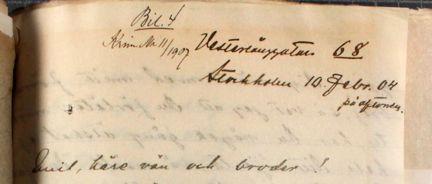 Bil. 4
Krim. No 11/1907
Vesterlånggatan 68
Stockholm 10. Febr. 04
på aftonen.
Emil, käre vän och broder!